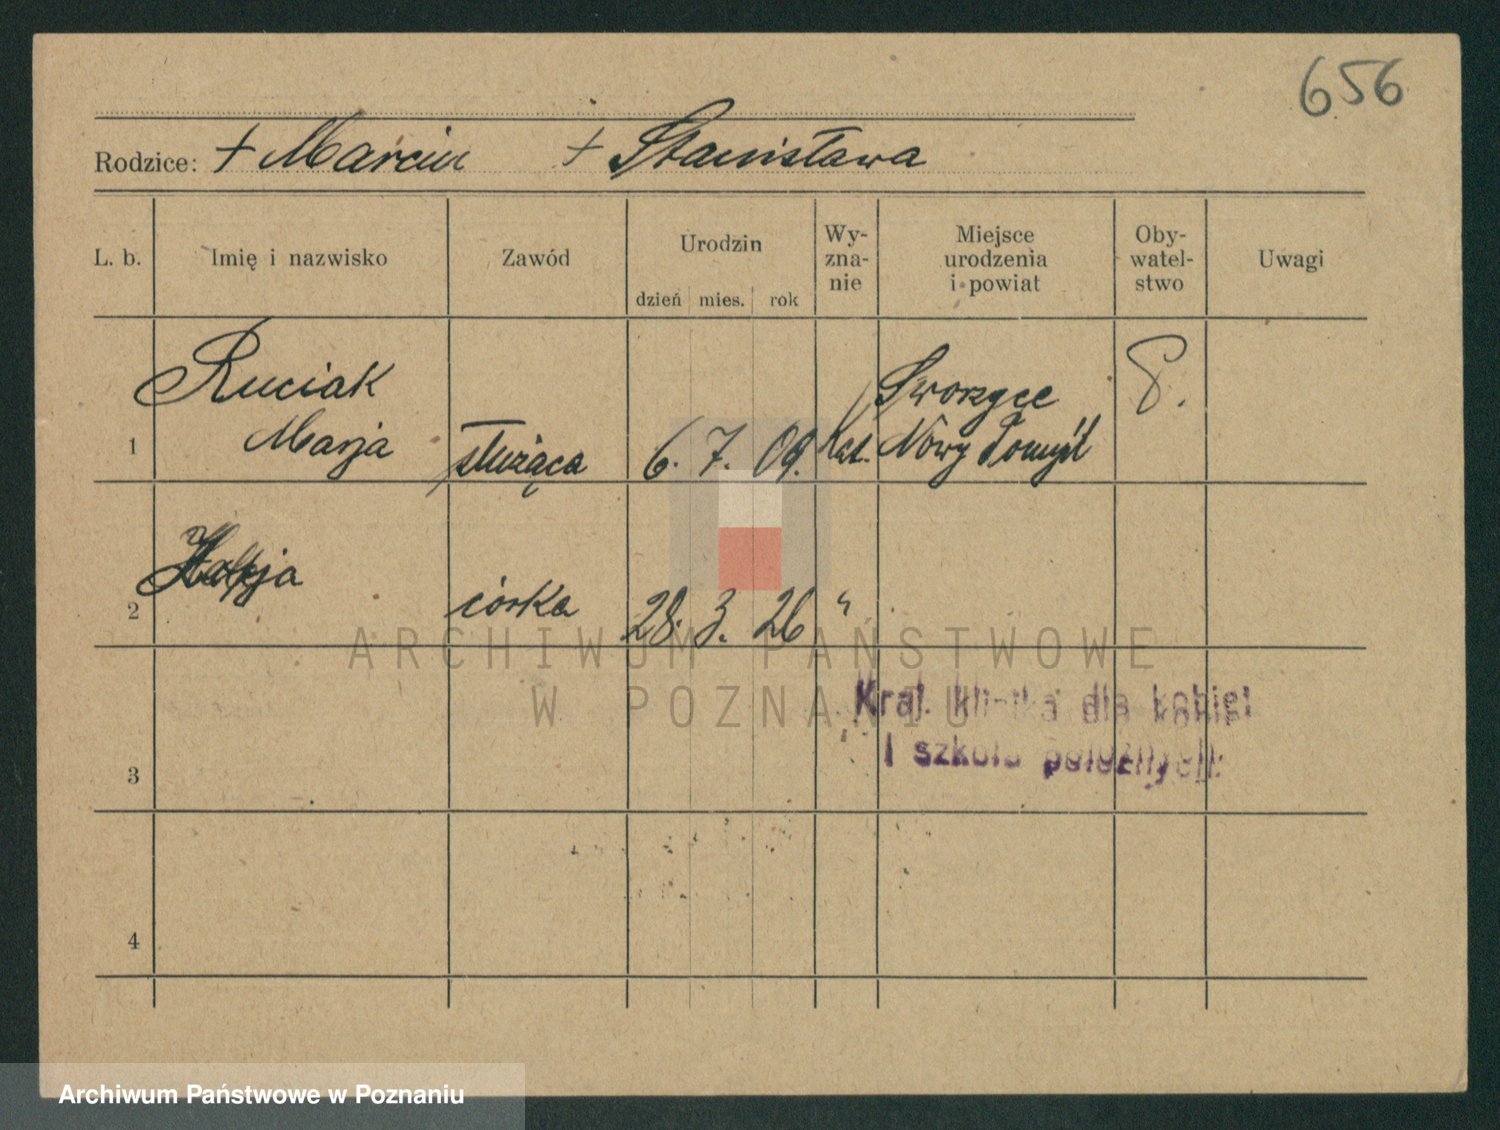 656
Rodzice: + Marcin + Stanisława
L. b. Imię i nazwisko Zawód Urodzin dzień mies. rok Wy-zna-nie Miejsce urodzenia i powiat Oby-watel-stwo Uwagi
Ruciak Sworzyce
1 Marja służąca 6. 7. 09. Kat. Nowy Tomyśl
2 córka 28. 3. 26 "
ARCHIWUM PAŃSTWOWE
W POZNANIU
Kraj. klinika dla kobiet
i szkoła położnych
3
4
Archiwum Państwowe w Poznaniu